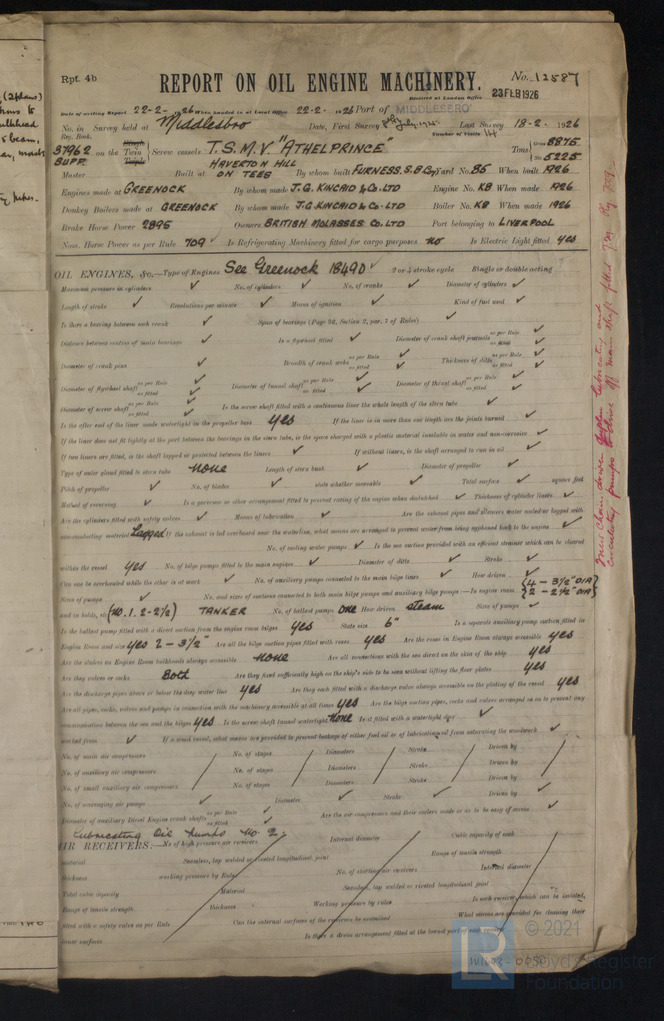 Rpt. 4b
REPORT ON OIL ENGINE MACHINERY.
No. 12587
Received at London Office
23 FEB 1926
Date of writing Report 22-2-1926 When handed in at Local Office 22-2-1926 Port of MIDDLESBRO'
No. in Reg. Book. Survey held at Middlesbro Date, First Survey July 1925 Last Survey 18-2-1926
Number of Visits 14
37962 SUPP. on the Single Twin Triple Screw vessels T.S.M.V "ATHELPRINCE" Tons Gross 8875 Net 5225
Master Built at HAVERTON HILL ON TEES By whom built FURNESS. S.B. Coy Yard No. 85 When built 1926
Engines made at GREENOCK By whom made J.G. KINCAID & Co. LTD Engine No. K8 When made 1926
Donkey Boilers made at GREENOCK By whom made J.G. KINCAID & Co. LTD Boiler No. K8 When made 1926
Brake Horse Power 2895 Owners BRITISH MOLASSES Co. LTD Port belonging to LIVERPOOL
Nom. Horse Power as per Rule 709 Is Refrigerating Machinery fitted for cargo purposes NO Is Electric Light fitted YES
OIL ENGINES, &c.—Type of Engines See Greenock 18490 2 or 4 stroke cycle Single or double acting
Maximum pressure in cylinders No. of cylinders No. of cranks Diameter of cylinders
Length of stroke Revolutions per minute Means of ignition Kind of fuel used
Is there a bearing between each crank Span of bearings (Page 92, Section 2, par. 7 of Rules)
Distance between centres of main bearings Is a flywheel fitted Diameter of crank shaft journals as per Rule as fitted
Diameter of crank pins Breadth of crank webs as per Rule as fitted Thickness of ditto as per Rule as fitted
Diameter of flywheel shaft as per Rule as fitted Diameter of tunnel shaft as per Rule as fitted Diameter of thrust shaft as per Rule as fitted
Diameter of screw shaft as per Rule as fitted Is the screw shaft fitted with a continuous liner the whole length of the stern tube
Is the after end of the liner made watertight in the propeller boss yes If the liner is in more than one length are the joints burned
If the liner does not fit tightly at the part between the bearings in the stern tube, is the space charged with a plastic material insoluble in water and non-corrosive
If two liners are fitted, is the shaft lapped or protected between the liners If without liners, is the shaft arranged to run in oil
Type of outer gland fitted to stern tube none Length of stern bush Diameter of propeller
Pitch of propeller No. of blades state whether moveable Total surface square feet
Method of reversing Is a governor or other arrangement fitted to prevent racing of the engine when declutched Thickness of cylinder liners
Are the cylinders fitted with safety valves Means of lubrication Are the exhaust pipes and silencers water cooled or lagged with
non-conducting material Lagged If the exhaust is led overboard near the waterline, what means are arranged to prevent water from being syphoned back to the engine
No. of cooling water pumps Is the sea suction provided with an efficient strainer which can be cleared
within the vessel yes No. of bilge pumps fitted to the main engines Diameter of ditto Stroke
Can one be overhauled while the other is at work No. of auxiliary pumps connected to the main bilge lines How driven
Sizes of pumps No. and sizes of suctions connected to both main bilge pumps and auxiliary bilge pumps:—In engine room 4 - 3½" DIA 2 - 2½" DIA
and in holds, etc. (No. 1. 2-2½) TANKER No. of ballast pumps one How driven steam Sizes of pumps
Is the ballast pump fitted with a direct suction from the engine room bilges yes State size 6" Is a separate auxiliary pump suction fitted in
Engine Room and size yes 2 - 3½" Are all the bilge suction pipes fitted with roses yes Are the roses in Engine Room always accessible yes
Are the sluices on Engine Room bulkheads always accessible none Are all connections with the sea direct on the skin of the ship yes
Are they valves or cocks Both Are they fixed sufficiently high on the ship's side to be seen without lifting the floor plates yes
Are the discharge pipes above or below the deep water line yes Are they each fitted with a discharge valve always accessible on the plating of the vessel yes
Are all pipes, cocks, valves and pumps in connection with the machinery accessible at all times yes Are the bilge suction pipes, cocks and valves arranged so as to prevent any
communication between the sea and the bilges yes Is the screw shaft tunnel watertight none Is it fitted with a watertight door
worked from If a wood vessel, what means are provided to prevent leakage of either fuel oil or of lubricating oil from saturating the woodwork
No. of main air compressors No. of stages Diameters Stroke Driven by
No. of auxiliary air compressors No. of stages Diameters Stroke Driven by
No. of small auxiliary air compressors No. of stages Diameters Stroke Driven by
No. of scavenging air pumps Diameter Stroke Driven by
Diameter of auxiliary Diesel Engine crank shafts as per Rule as fitted Are the air compressors and their coolers made so as to be easy of access
Lubricating Oil Pumps No. 2
AIR RECEIVERS:—No. of high pressure air receivers Internal diameter Cubic capacity of each
material Seamless, lap welded or riveted longitudinal joint Range of tensile strength
thickness working pressure by Rules No. of starting air receivers Internal diameter
Total cubic capacity Material Seamless, lap welded or riveted longitudinal joint
Range of tensile strength thickness Working pressure by rules Is each receiver, which can be isolated,
fitted with a safety valve as per Rule Can the internal surfaces of the receivers be examined What means are provided for cleaning their
inner surfaces Is there a drain arrangement fitted at the lowest part of each receiver
LR
© 2021
Lloyd's Register
Foundation